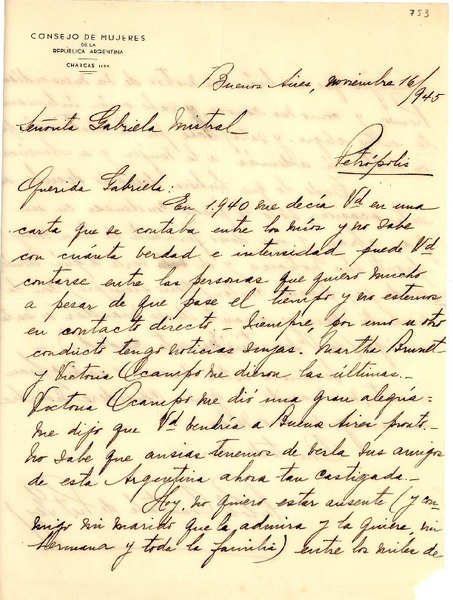 753
CONSEJO DE MUJERES
DE LA
REPÚBLICA ARGENTINA
CHARCAS
Buenos Aires, noviembre 16/945
Señorita Gabriela Mistral
Petrópolis
Querida Gabriela:
En 1.940 me decía Vd en una
carta que se contaba entre los míos y no sabe
con cuánta verdad e intensidad puede Vd
contarse entre las personas que quiero mucho
a pesar de que pase el tiempo y no estemos
en contacto directo.- Siempre, por uno u otro
conducto tengo noticias suyas. Martha Brunet
y Victoria Ocampo me dieron las últimas.-
Victoria Ocampo me dió una gran alegría:
me dijo que Vd vendría a Buenos Aires pronto.-
No sabe que ansias tenemos de verla sus amigos
de esta Argentina ahora tan castigada.-
Hoy, no quiero estar ausente (y con-
migo mi marido que la admira y la quiere, mi
hermana y toda la familia) entre los miles de